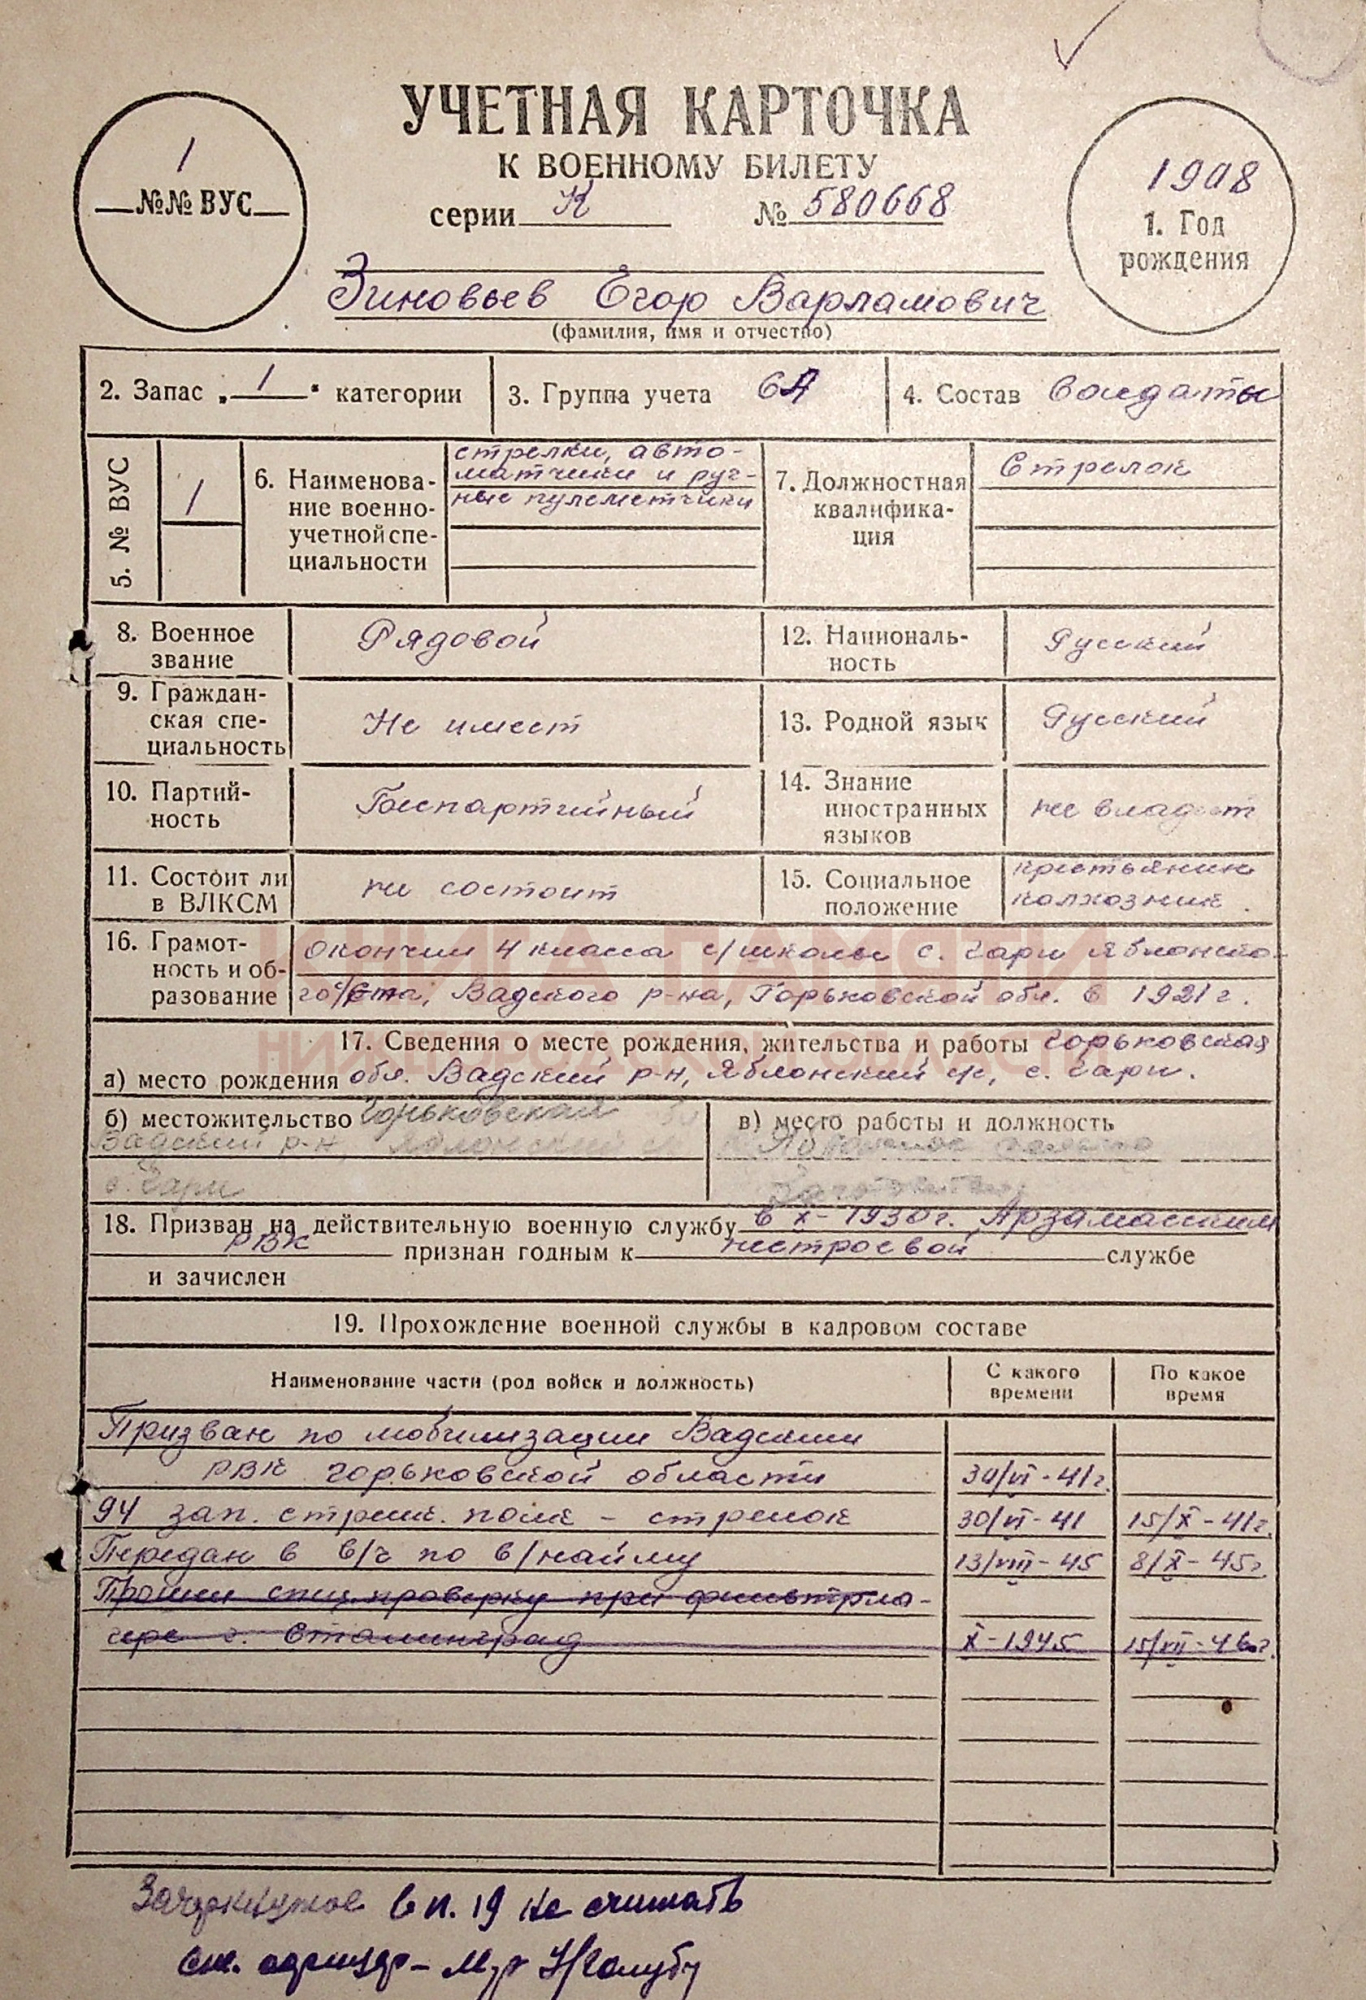 УЧЕТНАЯ КАРТОЧКА
К ВОЕННОМУ БИЛЕТУ
серии К № 580668
1
№№ ВУС
1908
1. Год
рождения
Зиновьев Егор Варламович
(фамилия, имя и отчество)
2. Запас „1“ категории
3. Группа учета 6А
4. Состав Солдаты
5. № ВУС
1
6. Наименова-
ние военно-
учетной спе-
циальности
стрелки, авто-
матчики и руч-
ные пулеметчики
7. Должностная
квалифика-
ция
Стрелок
8. Военное
звание
Рядовой
12. Националь-
ность
Русский
9. Граждан-
ская спе-
циальность
Не имеет
13. Родной язык
Русский
10. Партий-
ность
Беспартийный
14. Знание
иностранных
языков
не владеет
11. Состоит ли
в ВЛКСМ
не состоит
15. Социальное
положение
крестьянин
колхозник
16. Грамот-
ность и об-
разование
окончил 4 класса с/школы с. Гари Яблонско-
го с/с-та, Вадского р-на, Горьковской обл. в 1921 г.
КНИГА ПАМЯТИ
НИЖЕГОРОДСКОЙ ОБЛАСТИ
17. Сведения о месте рождения, жительства и работы Горьковская
а) место рождения обл. Вадский р-н, Яблонский с/с, с. Гари.
б) местожительство Горьковская
Вадский р-н, Яблонский
с. Гари
в) место работы и должность
18. Призван на действительную военную службу в X-1930 г. Арзамасским
РВК признан годным к нестроевой службе
и зачислен
19. Прохождение военной службы в кадровом составе
Наименование части (род войск и должность)
С какого
времени
По какое
время
Призван по мобилизации Вадским
РВК Горьковской области 30/VI-41 г.
94 зап. стрелк. полк - стрелок 30/VI-41 15/X-41 г.
Передан в в/ч по в/найму 13/VIII-45 8/X-45 г.
Прошел спец. проверку при фильтрла-
гере г. Сталинград X-1945 15/VII-46 г.
Зачеркнутое в п. 19 не считать